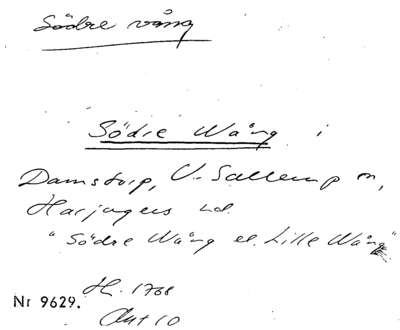 Södre vång
Södre Wång i
Damstorp, V. Sallerup sn,
Harjagers hd.
"Södre Wång el. Lille Wång"
H. 1768
Nr 9629.
Akt 10